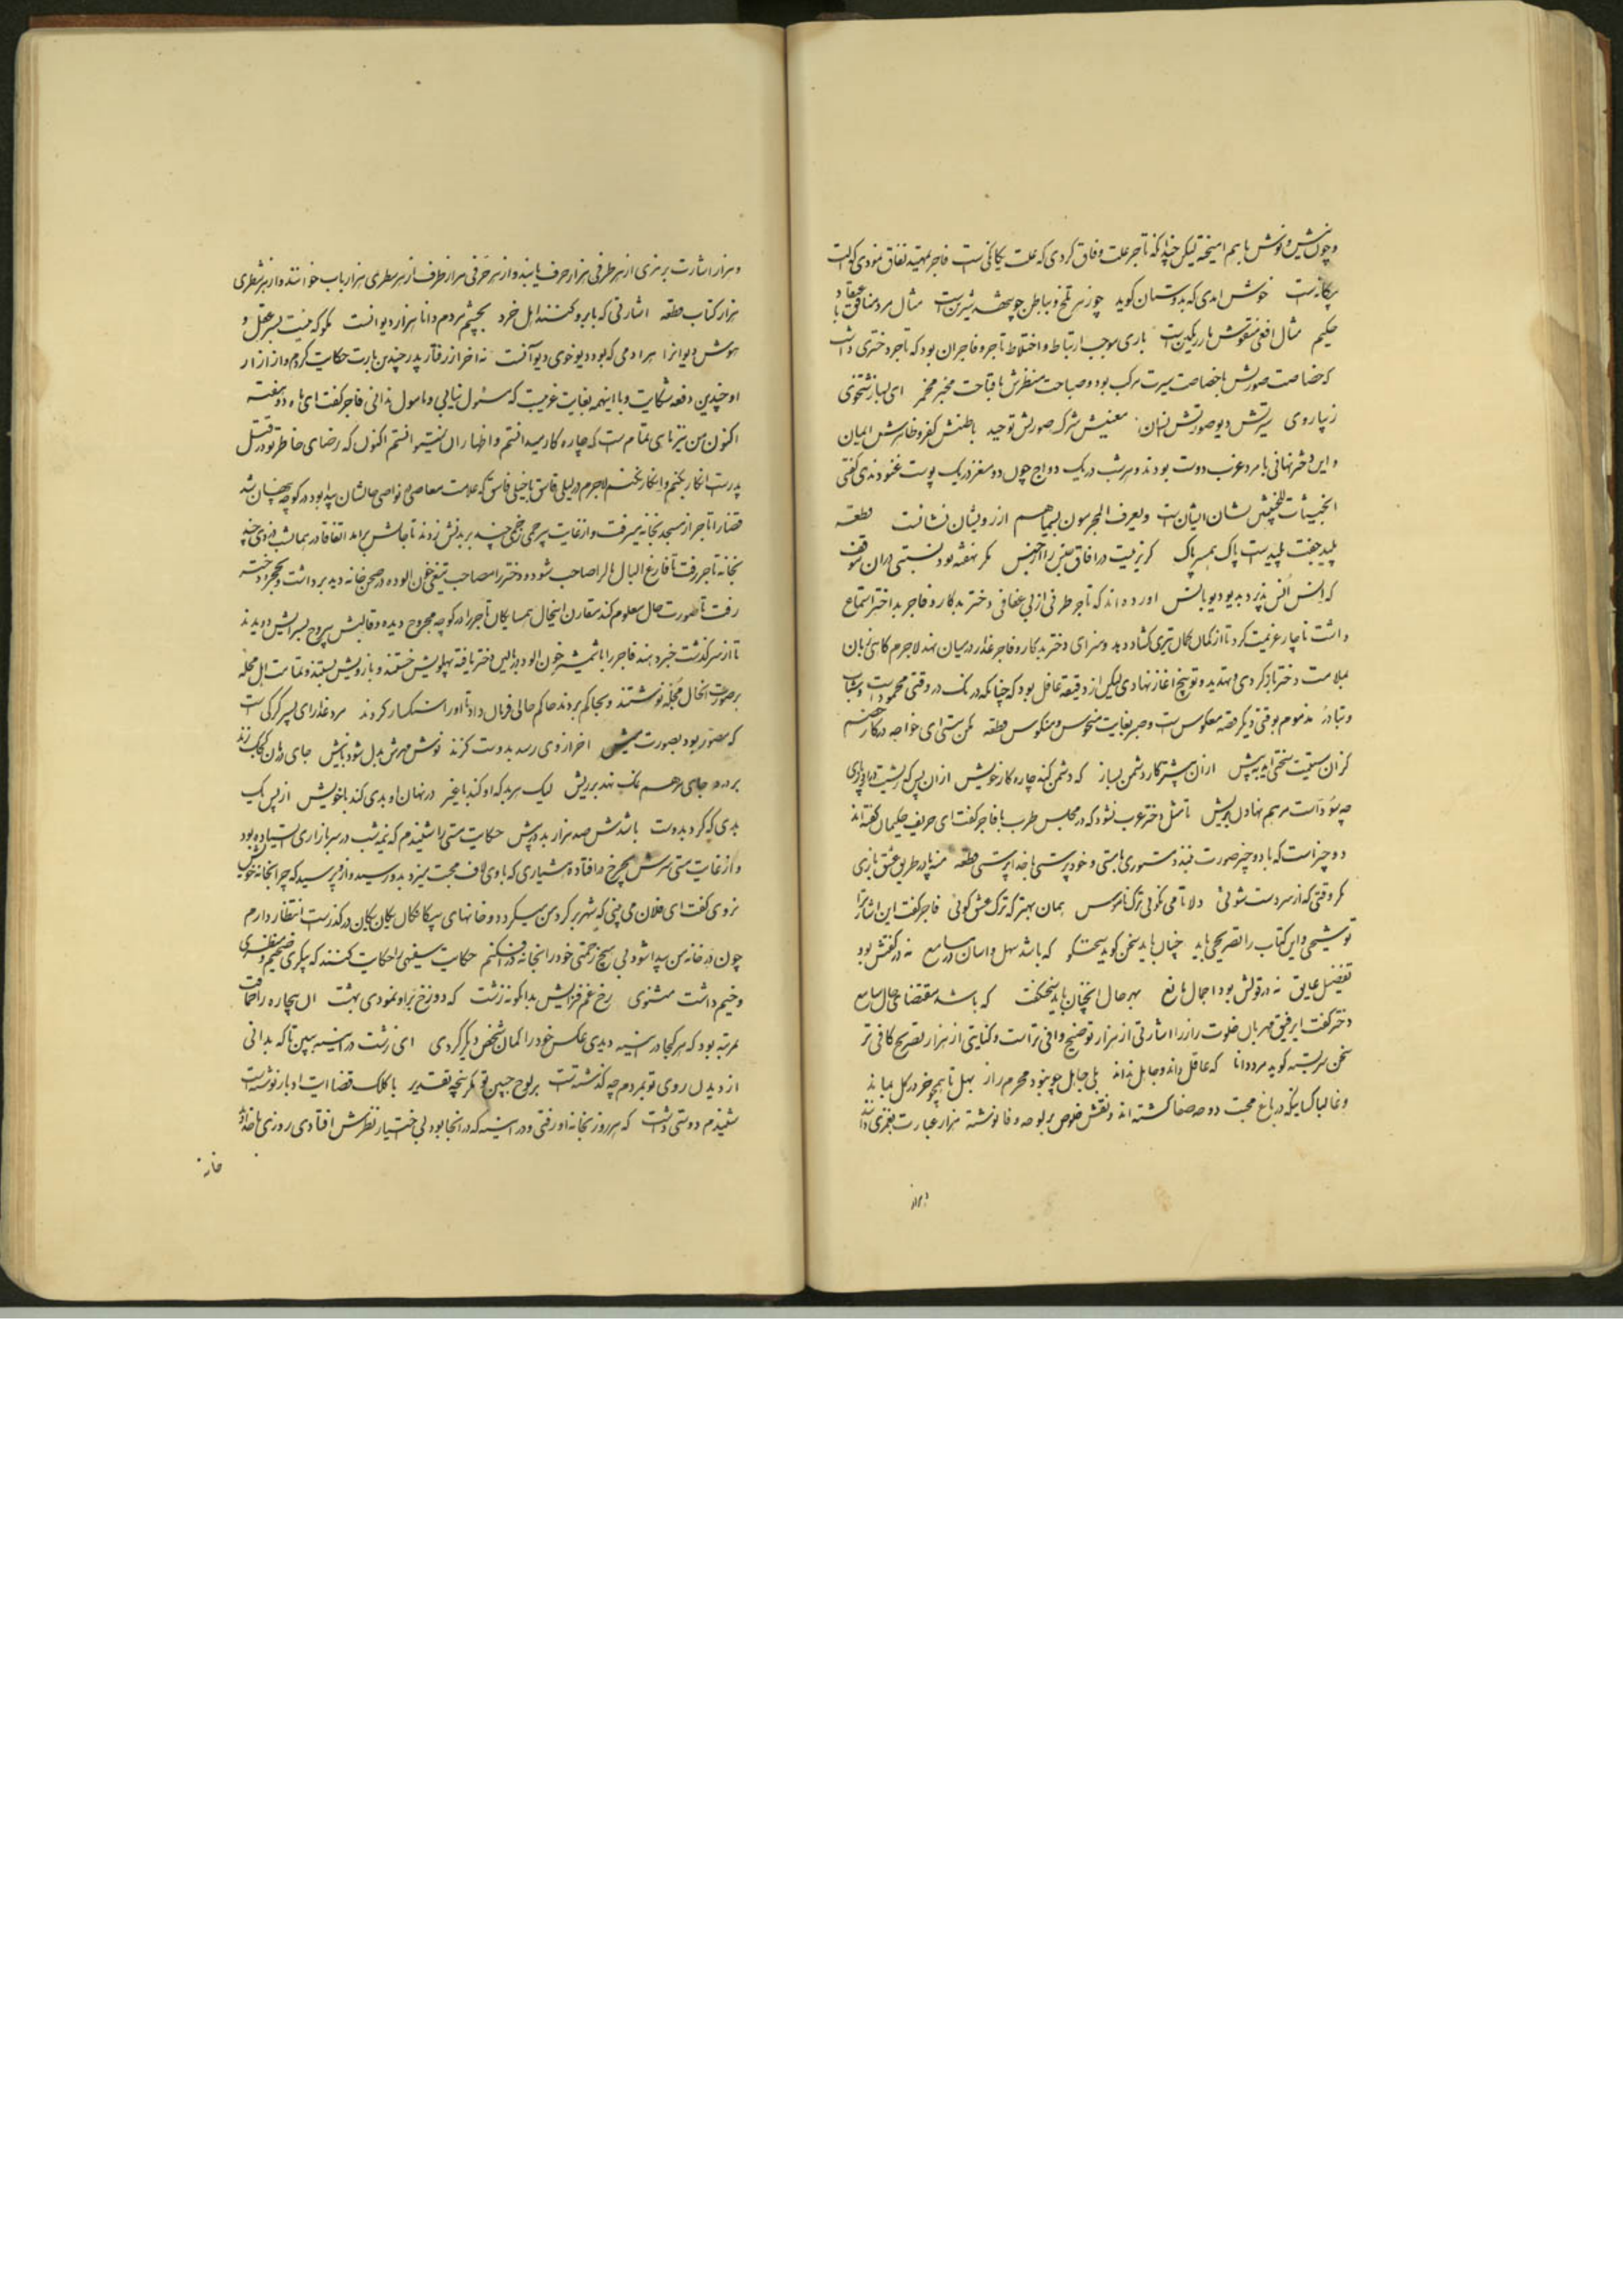 و چون نیش و نوش با هم امیخته لیکن چندانکه تاجر علت وفاق کردی که علت یکانکی است فاجر تمهید نفاق نمودی که
بیکانه است خوش امدی که بدوستان کوید چو زهر تلخ و بباطن چو شهد شیرین است مثال مرد منافق
حکیم مثال افعی منقوش مار رنکین است باری موجب ارتباط و اختلاط تاجر و فاجر ان بود که تاجر دختری داشت
که صورتش با سیرت مرکب بود و صباحت منظرش با قباحت مخبر مخمر ای بسا زشتخوی
زیبا روی سیرتش دیو صورتش انسان معنیش شرک صورتش توحید باطنش کفر و ظاهرش ایمان
و این دختر نهانی با مرد عزب دوست بودند و هر شب در یک دواج چون دو مغز در یک پوست غنودندی کفتی
الخبیثات للخبیثین نشان ایشان است و یعرف المجرمون بسیماهم از رو یشان نشانت قطعه
پلید جفت پلید است پاک همسر پاک کریز نیست در افاق جنس را از جنس مکر نهفته بود نسبتی در ان
که انس انس پذیرد بدیو دیو بانس اورده اند که تاجر طرفی از بی عفافی دختر بدکار و فاجر بد اختر استماع
داشت ناچار عزیمت کرد تا از کمان کمال تیری کشاد دهد و سزای دختر بدکار و فاجر غدار در میان نهد لاجرم کاهی زبان
بملامت دختر باز کردی و تهدید و توبیخ اغاز نهادی لیکن از دقیقه غافل بود که چنانکه درنک در وقتی محمود است و شتاب
و تبادر مذموم بوقتی دیکر قصه معکوس است و صبر بغایت منحوس و منکوس قطعه مکن سستی ای خواجه در کار خصم
کزان سستیت سختی اید به پیش از ان پیشتر کار دشمن بساز که دشمن کند چاره کار خویش از ان پس که ریشت
چه سود است مرهم نهادن بریش تا مثل دختر عزب نشود که در مجلس طرب با فاجر کفت ای حریف حکیمان کفته اند
دو چیز است که با دو چیز صورت نبندد مستوری با مستی و خود پرستی با خدا پرستی قطعه منه پا در طریق عشق بازی
مکر وقتی که از سر دست شوئی دلا تا می نکوئی ترک ناموس همان بهتر که ترک عشق کوئی فاجر کفت این اشارت را
توشیحی و این کتاب را تصریحی باید چنان باید سخن کوید سخنکو که باشد سهل و اسان در مسامع نه در کفتش بود
تفضیل عایق نه در قولش بود اجمال مانع بهر حال انچنان باید سخن کفت که باشد مقتضای حال سامع
دختر کفت ای رفیق مهربان خلوت راز را اشارتی از هزار توضیح وافی تر است و کنایتی از هزار تصریح کافی تر
سخن سربسته کوید مرد دانا که عاقل داند و جاهل نداند بلی جاهل چو نبود محرم راز بهل تا همچو خر در کل بماند
و غالبا کسانیکه در باغ محبت دوحه صفا کشته اند و نقش خلوص بر لوحه وفا نوشته هزار عبارت بغمزی دانند
و هزار اشارت برمزی از هر طرفی هزار حرف یابند و از هر حرفی هزار طرف از هر سطری هزار باب خوانند و از هر شطری
هزار کتاب قطعه اشارتی که بابرو کنند اهل خرد بچشم مردم دانا هزار دیوانست مکو که نیست بسر عقل و
هوش دیوانرا هر ادمی که بود دیو خوی دیو آنست نه اخر از رفتار پدر چندین بارت حکایت کردم و از ازار
او چندین دفعه شکایت و با اینهمه بغایت غریبست که مسئول نیابی و مامول ندانی فاجر کفت ای ماه دو هفته
اکنون من نیز ماهی تمام است که چاره کار میدانستم و اظهار ان نمیتوانستم اکنون که رضای خاطر تو در قتل
پدرت انکار نکنم و انکار نکنم لاجرم در لیلی فاسق با خیلی فاسق که علامت معاصی از نواصی حالشان پیدا بود در کوچه پنهان شد
قضا را تاجر از مسجد بخانه میرفت و از غایت بیرحمی زخمی چند بر بدنش زدند تا جانش برامد اتفاقا در همان شب دزدی چند
بخانه تاجر رفت تا فارغ البال مال را صاحب شود و دختر را مصاحب تیغی خون الوده در صحن خانه دید برداشت و بحجره دختر
رفت تا صورت حال معلوم کند مقارن اینحال همسایکان تاجر را در کوچه مجروح دیده و قالبش بیروح بسرایش دویدند
تا از سرکذشت خبر دهند فاجر را با شمشیر خون الود در بالین دختر یافته پهلویش خستند و بازویش بستند و تمامت اهل محله
بر صورت انحال محجله نوشتند و بحاکم بردند حاکم حالی فرمان داد تا او را سنکسار کردند مرد غدار ای پسر کرکی است
که مصور بود بصورت میش اخر از وی رسد بدوست کزند نوش مهرش بدل شود بنیش جای درمان کجک زند
بر درد جای مرهم نمک نهد بر ریش لیک هر بد که او کند با غیر در نهان او بدی کند با خویش از پس یک
بدی که کرد بدوست باشدش صد هزار بد در پیش حکایت مستی را شنیدم که نیمه شب در سر بازاری ایستاده بود
و از غایت مستی سرش بچرخ در افتاده هشیاری که با وی لاف محبت میزد بدو رسید و از و پرسید که چرا بخانه خویش
نروی کفت ای فلان می بینی که شهر بر کرد من میکردد و خانهای بیکانکان یکان یکان در کذرست انتظار دارم
چون در خانه من پیدا شود بی هیچ زحمتی خود را انجا در افکنم حکایت سفیهی را حکایت کنند که پیکری ضخیم و منظری
وخیم داشت مثنوی رخ غم فزایش بدانکونه زشت که دوزخ بر او نمودی بهشت ان بیچاره را حماقت
بمرتبه بود که هر کجا در اینه دیدی عکس خود را کمان شخص دیکر کردی ای زشت در اینه ببین تا که بدانی
از دیدن روی تو بمردم چه کذشته است بر لوح جبین تو مکر پنجه تقدیر با کلک قضا ایت ادبار نوشته است
شنیدم دوستی داشت که هر روز بخانه او رفتی و در اینه که در انجا بود بی اختیار نظرش افتادی روزی با خداوند
خانه